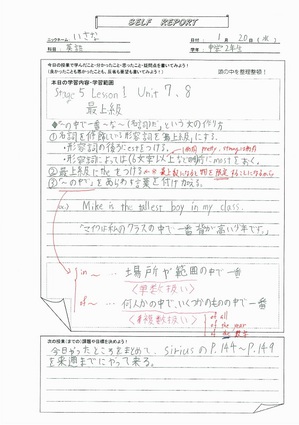 SELF REPORT
ニックネーム：いさな
日付：1月20日(水)
科目：英語
学年：中学2年生
今日の授業で学んだこと・分かったこと・思ったこと・疑問点を書いてみよう！
(良かったことも悪かったことも、反省も展望も書いてみよう！)
頭の中を整理整頓！
今日の学習内容・学習範囲
Stage 5 Lesson 1 Unit 7、8
最上級
「〜の中で一番〜な〜(名詞)だ」という文の作り方
①名詞を修飾している形容詞を最上級にする。
・形容詞の後ろにestをつける。
・形容詞によっては(6文字以上など)前にmostをおく。
②最上級にtheをつける
③「〜の中で」をあらわす言葉を付け加える。
ex) Mike is the tallest boy in my class.
「マイクは私のクラスの中で一番背が高い少年です。」
in 〜 … 場所や範囲の中で一番
〈単数扱い〉
of 〜 … 何人かの中で、いくつかのものの中で一番
〈複数扱い〉
of all
of the year
of the 数字
次の授業(まで)の課題や目標を決めよう！
今日やったところをまとめて、siriusのP.144〜P.149
を来週までにやって来る。